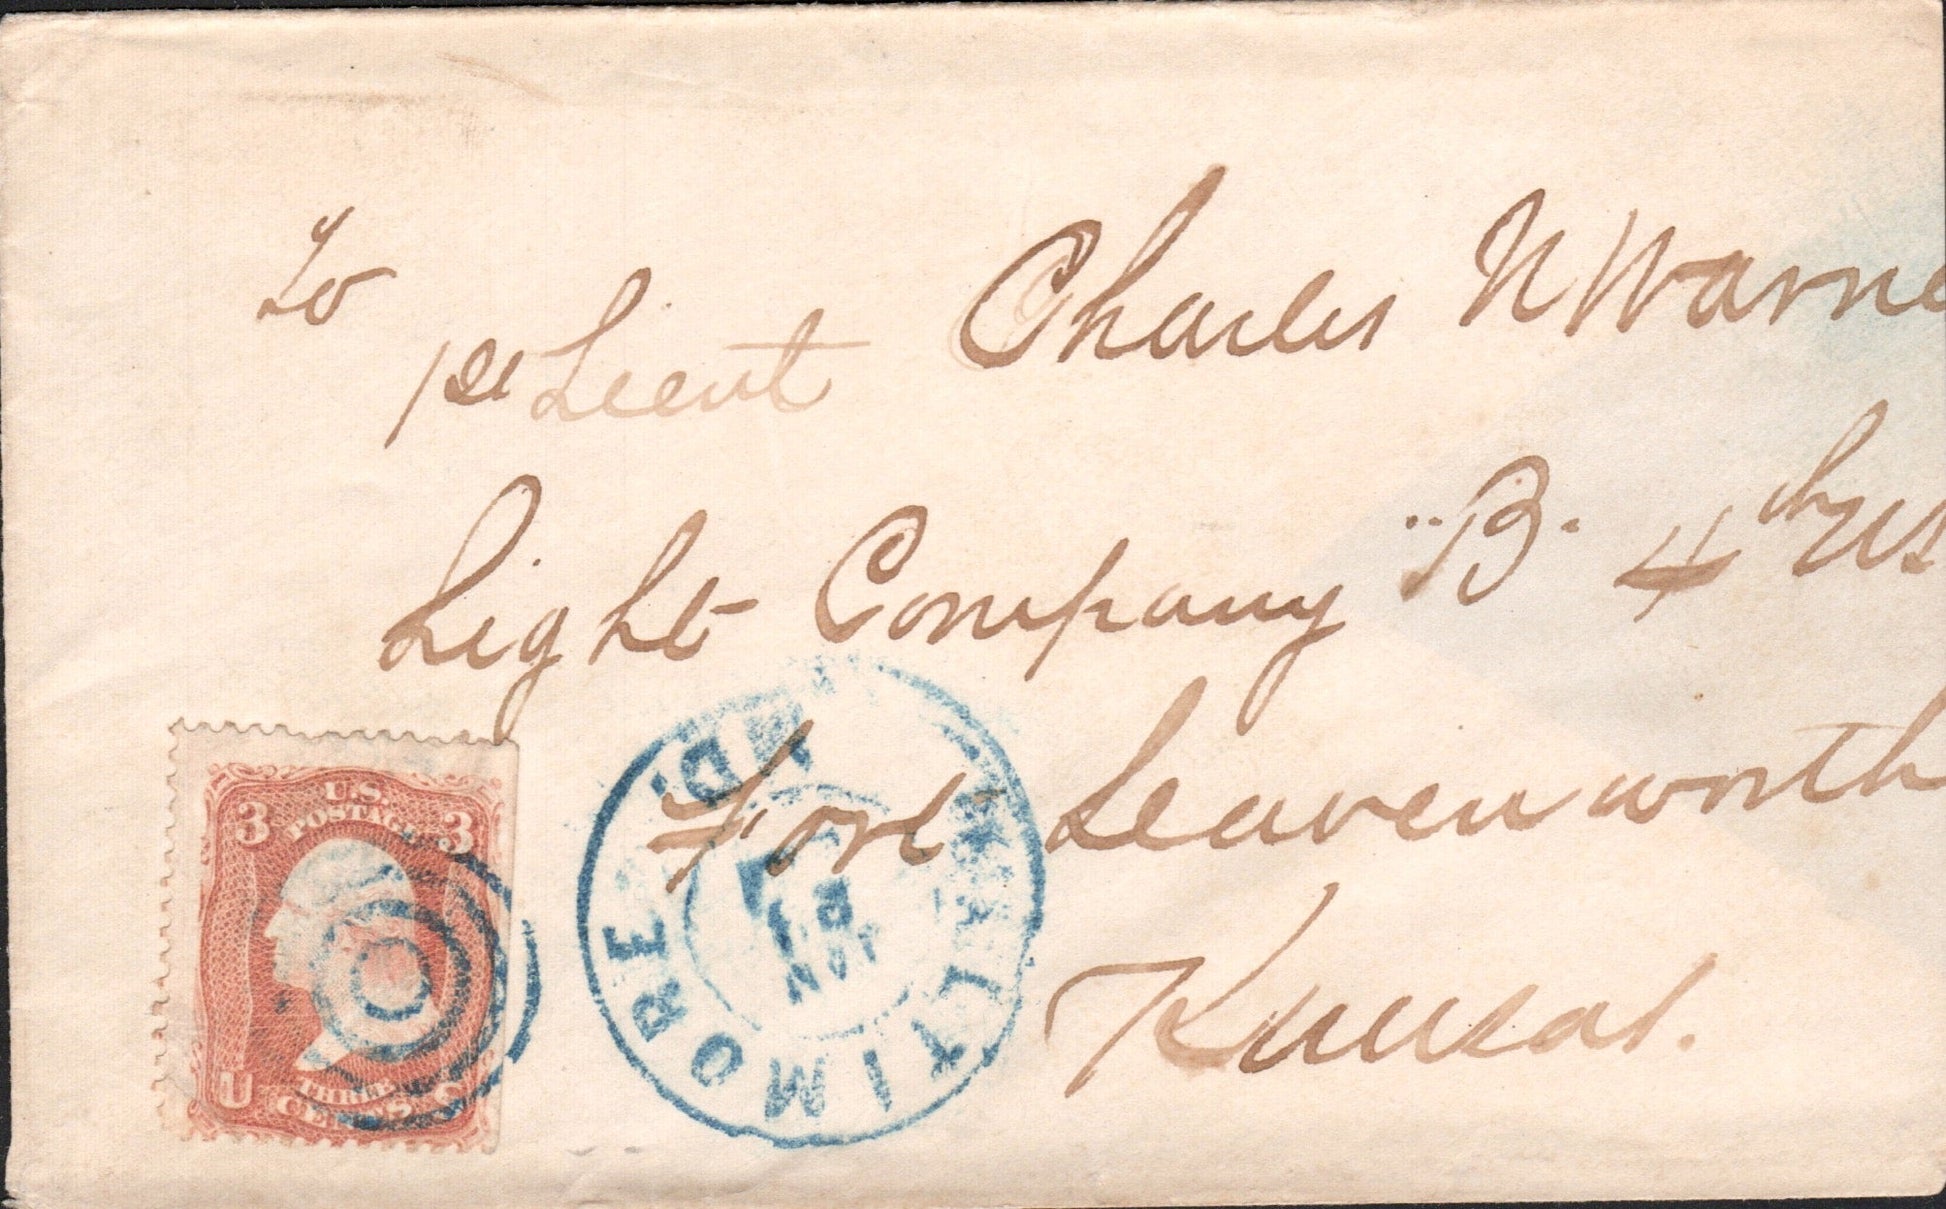 To
1st Lieut Charles N Warne
Light Company "B" 4th US
Fort Leavenworth
Kansas.
U.S.
POSTAGE
3 3
U S
THREE
CENTS
BALTIMORE MD.
JAN
18